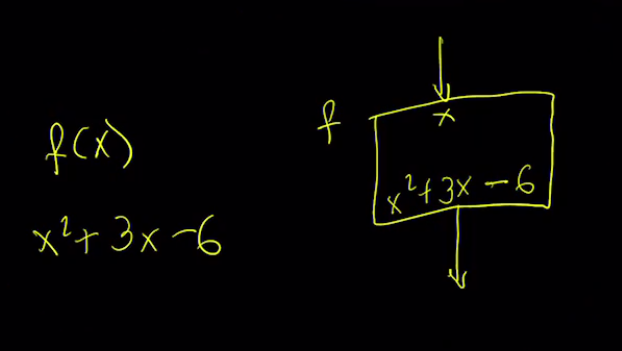 f(x)
x²+ 3x -6
f
x
x²+3x - 6